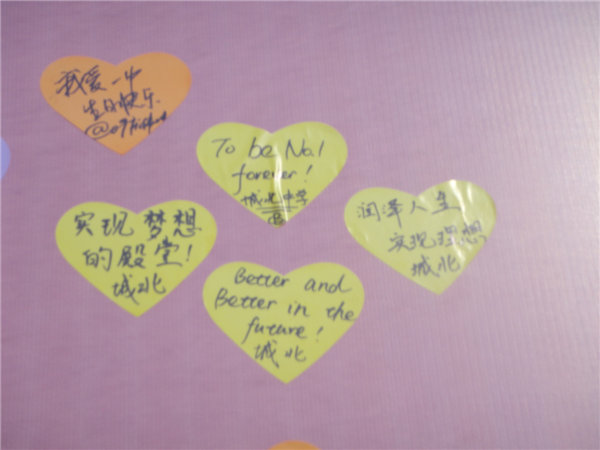 我爱一中
生日快乐
To be No.1
forever!
城北中学
实现梦想
的殿堂!
城北
润泽人生
实现理想
城北
Better and
Better in the
future!
城北